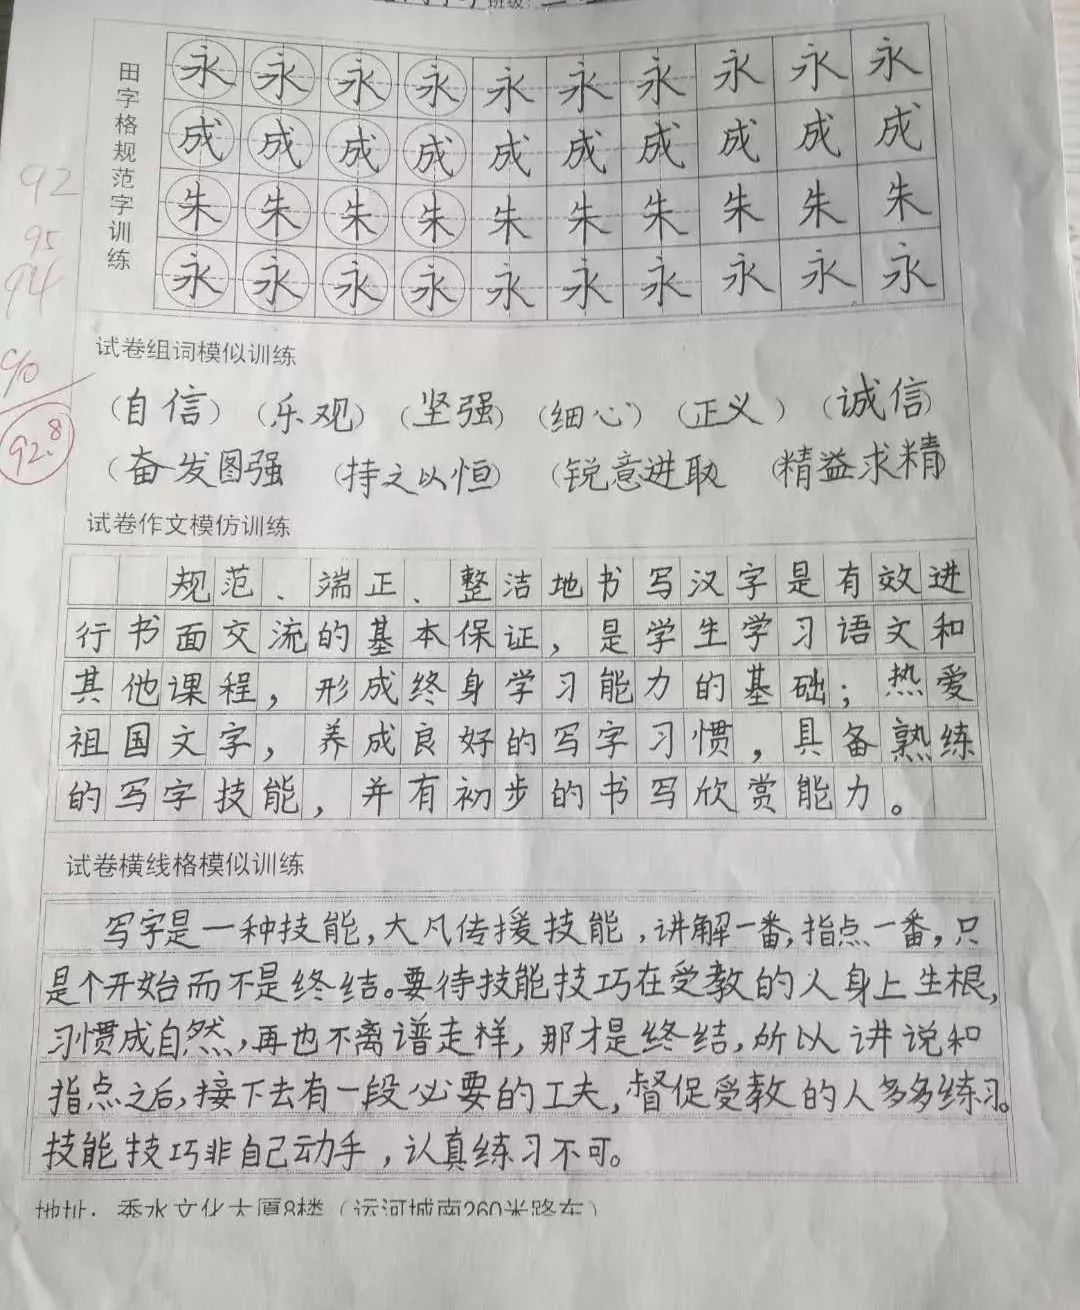 班级:
田字格规范字训练
永永永永永永永永永永
成成成成成成成成成成
朱朱朱朱朱朱朱朱朱朱
永永永永永永永永永永
92
95
94
90
92.8
试卷组词模似训练
(自信) (乐观) (坚强) (细心) (正义) (诚信)
(奋发图强 (持之以恒) (锐意进取 (精益求精)
试卷作文模仿训练
规范、端正、整洁地书写汉字是有效进
行书面交流的基本保证,是学生学习语文和
其他课程,形成终身学习能力的基础;热爱
祖国文字,养成良好的写字习惯,具备熟练
的写字技能,并有初步的书写欣赏能力。
试卷横线格模似训练
写字是一种技能,大凡传授技能,讲解一番,指点一番,只
是个开始而不是终结。要待技能技巧在受教的人身上生根,
习惯成自然,再也不离谱走样,那才是终结,所以讲说和
指点之后,接下去有一段必要的工夫,督促受教的人多多练习。
技能技巧非自己动手,认真练习不可。
地址:秀水文化大厦8楼(运河城南260米路东)